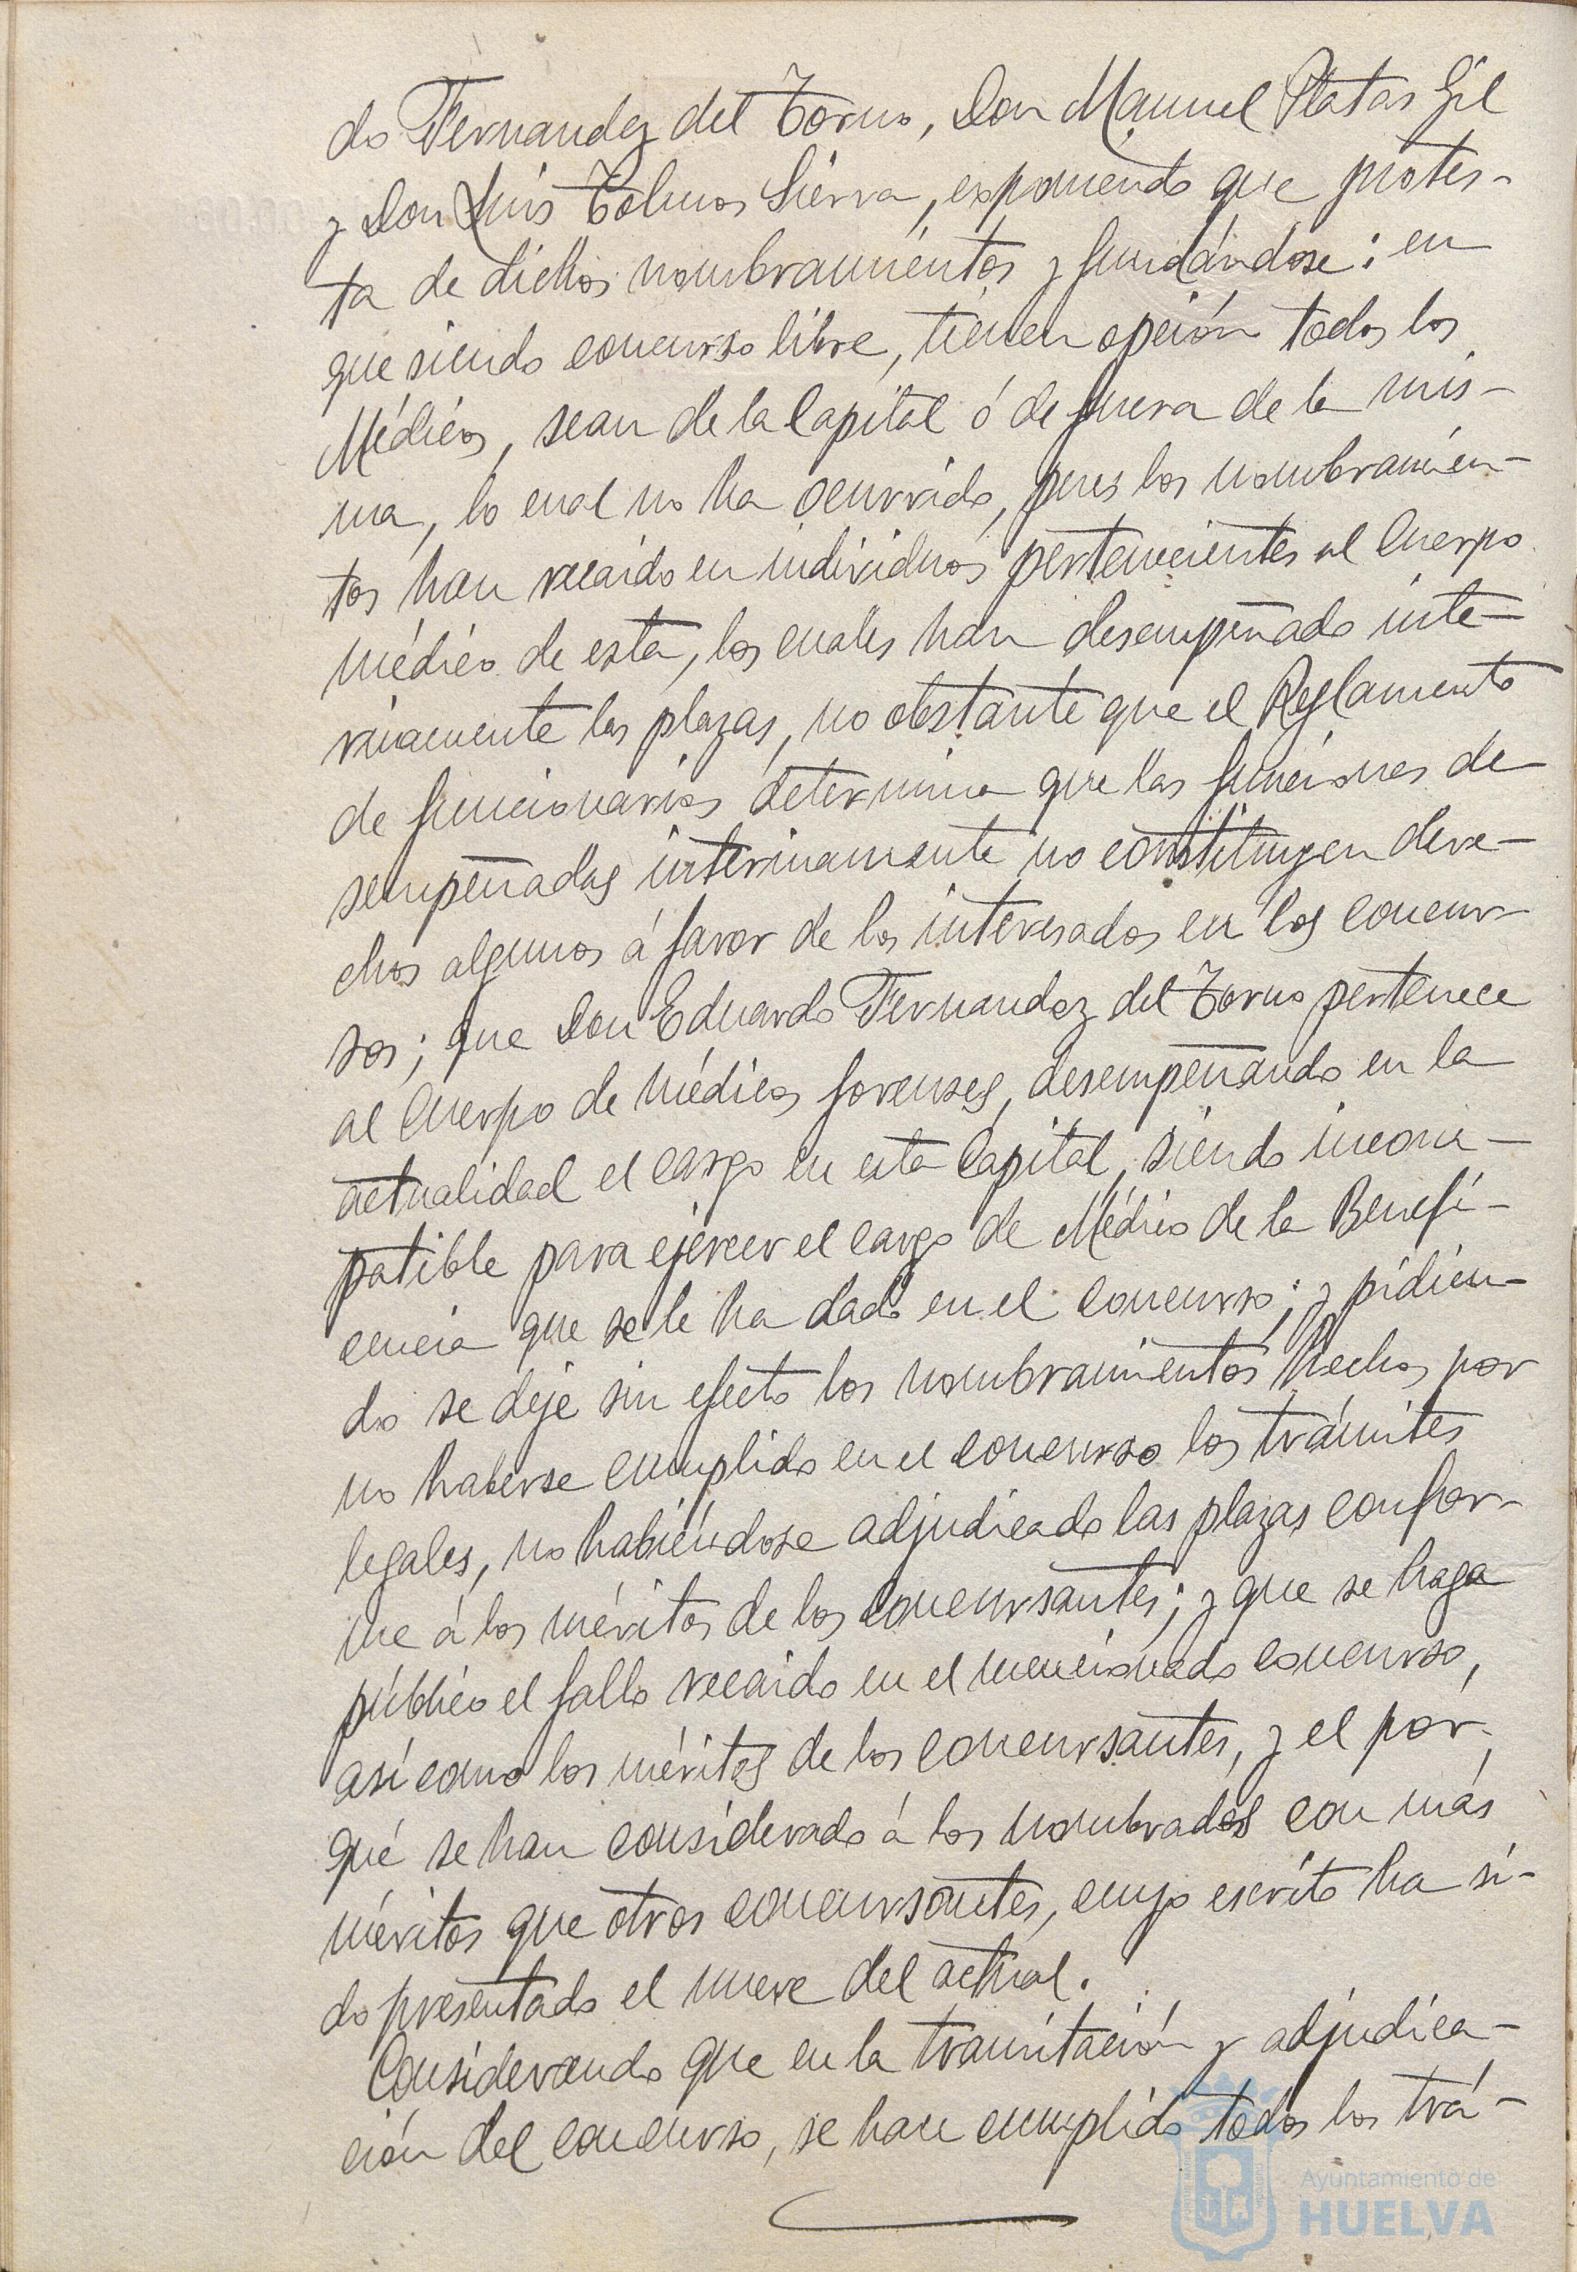 do Fernandez del Torno, Don Manuel Platas Gil
y Don Luis Tolmos Sierra, exponiendo que protes-
ta de dichos nombramientos y fundándose: en
que siendo concurso libre, tienen opción todos los
Médicos, sean de la Capital ó de fuera de la mis-
ma, lo cual no ha ocurrido, pues los nombramien-
tos han recaido en individuos pertenecientes al Cuerpo
médico de esta, los cuales han desempeñado inte-
rinamente las plazas, no obstante que el Reglamento
de funcionarios determina que las funciones de-
sempeñadas interinamente no constituyen dere-
chos algunos á favor de los interesados en los concur-
sos; que Don Eduardo Fernandez del Torno pertenece
al Cuerpo de Médicos forenses, desempeñando en la
actualidad el cargo en esta Capital, siendo incom-
patible para ejercer el cargo de Médico de la Benefi-
cencia que se le ha dado en el concurso; y pidien-
do se deje sin efecto los nombramientos hechos por
no haberse cumplido en el concurso los trámites
legales, no habiéndose adjudicado las plazas confor-
me á los méritos de los concursantes; y que se haga
público el fallo recaido en el mencionado concurso,
así como los méritos de los concursantes, y el por-
qué se han considerado á los nombrados con más
méritos que otros concursantes, cuyo escrito ha si-
do presentado el nueve del actual.
Considerando que en la tramitación y adjudica-
ción del concurso, se han cumplido todos los trá-
Ayuntamiento de
HUELVA